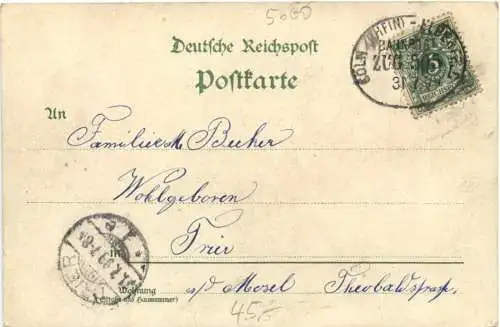 5000
Deutsche Reichspost
Postkarte
CÖLN (RHEIN) -
BAHNPOST
ZUG
5
An
Familie M. Becher
Wohlgeboren
Trier
in
Wohnung
(Straße und Hausnummer)
a/d Mosel Theobaldstrasse
45.-